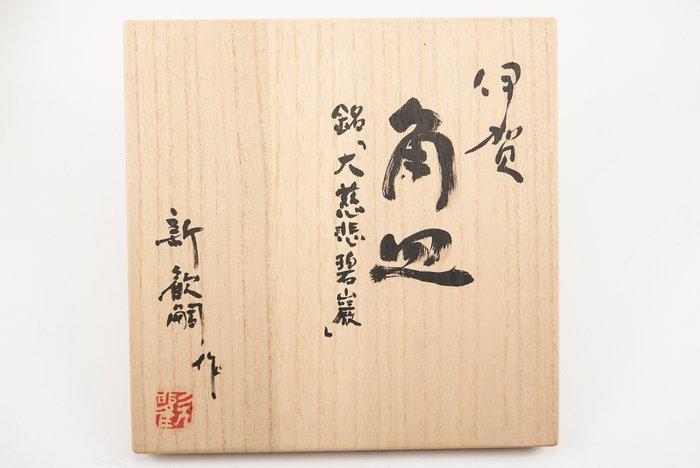 伊賀
角皿
銘「大慈悲碧巌」
新歓嗣作